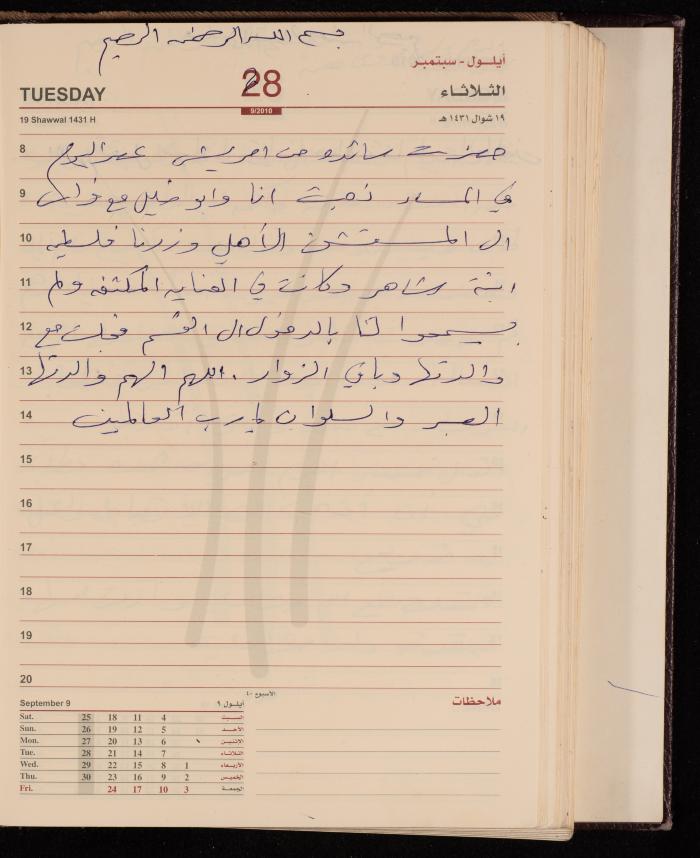 بسم الله الرحمن الرحيم
أيلول - سبتمبر
TUESDAY
28
الثلاثاء
9/2010
19 Shawwal 1431 H
١٩ شوال ١٤٣١ هـ
8 حضرت ساندو من عصر اليوم
9 في المساء ذهبت انا وابو خليل مع
10 الى المستشفى الأهلي وزرنا فلسطين
11 ابنة شاهر وكانت في العنايه المكثفه ولم
12 يسمحوا لنا بالدخول الى القسم فجلست مع
13 والدتها وباقي الزوار . اللهم الهم والدتها
14 الصبر والسلوان يا رب العالمين
15
16
17
18
19
20
الأسبوع ٤٠
ملاحظات
September 9 أيلول ٩
Sat. 25 18 11 4 السبت
Sun. 26 19 12 5 الأحد
Mon. 27 20 13 6 الاثنين
Tue. 28 21 14 7 الثلاثاء
Wed. 29 22 15 8 1 الأربعاء
Thu. 30 23 16 9 2 الخميس
Fri. 24 17 10 3 الجمعة